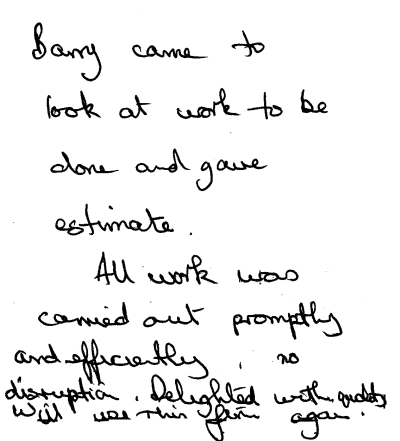 Barry came to
look at work to be
done and gave
estimate.
All work was
carried out promptly
and efficiently, no
disruption. Delighted with quality
Will use this firm again.